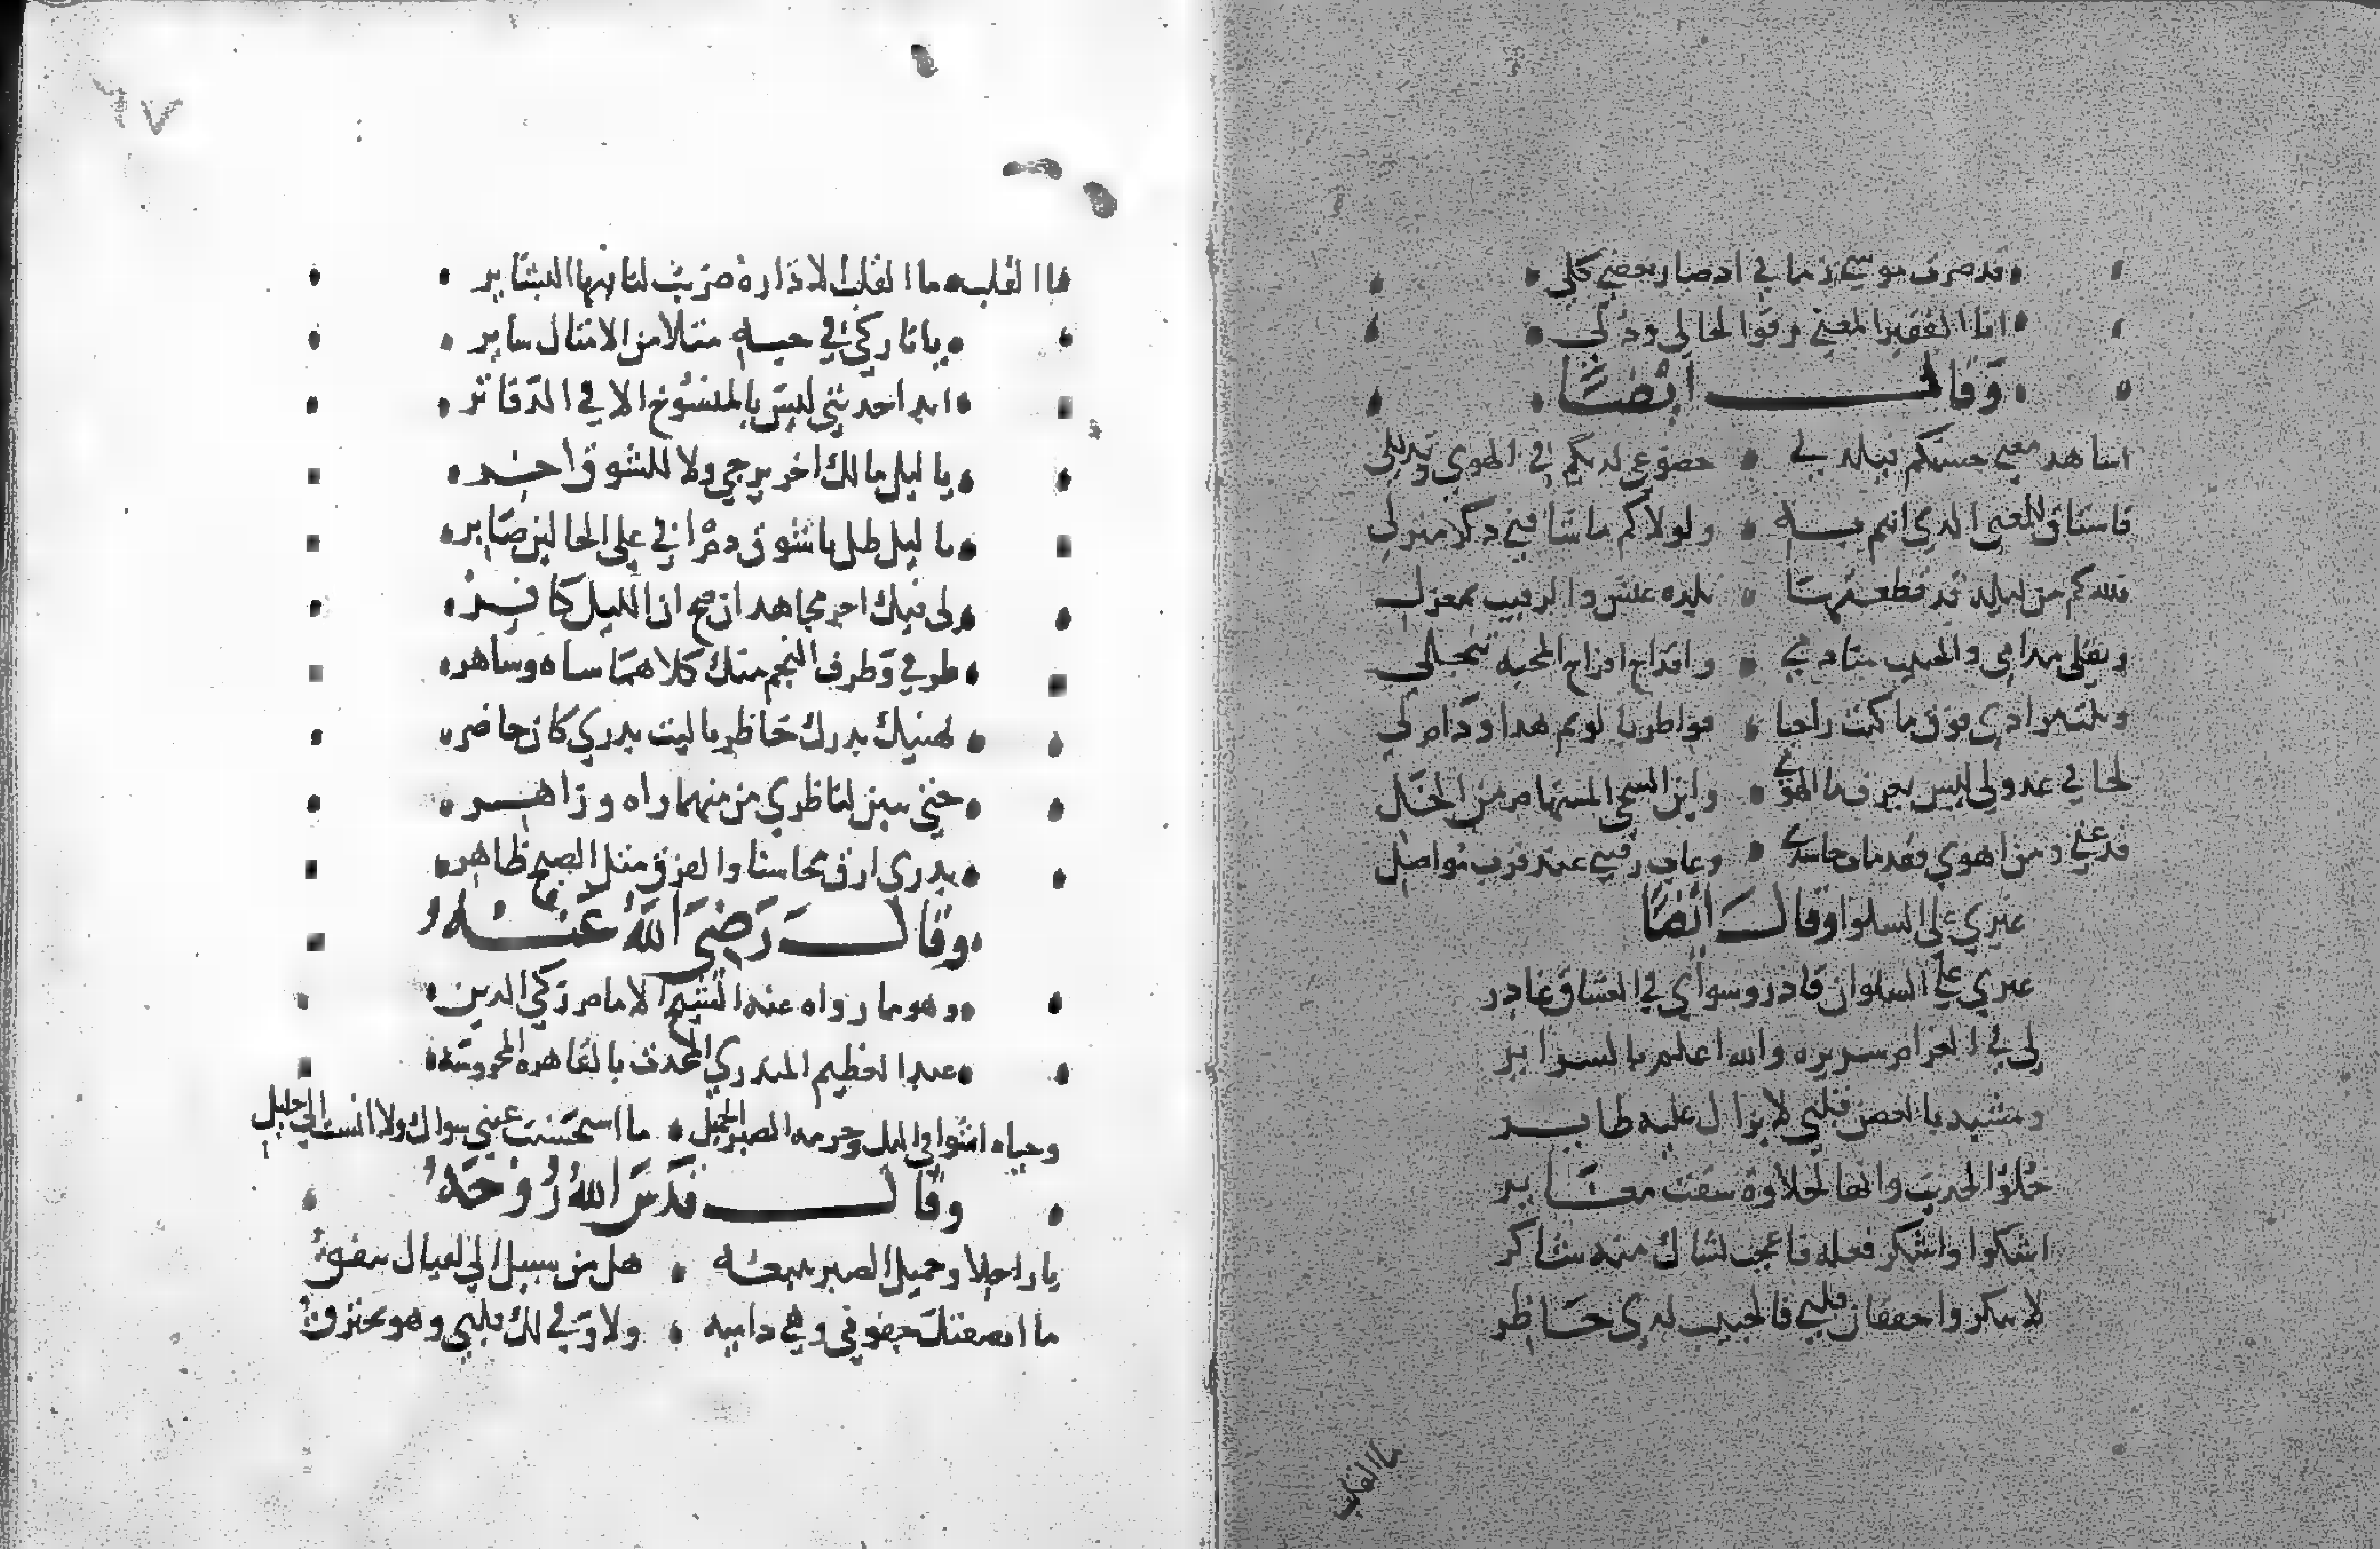 قد صرت موسى زماني اد صار بعضي كلي
انا الفقير المعنى رقوا لحالي وذلي
وقال ايضا
اشاهد معنى حسنكم فيلذ لي خضوعي لديكم في الهوى وتذللي
فاشتاق للمعنى الذي انتم به ولولاكم ما شاقني ذكر منزلي
فلله كم من ليلة قد قطعتها بلذه عيش والرقيب بمعزل
ونقلي مدامي والحبيب منادمي واقداح افراح المحبه تنجلي
ونلت مرادي فوق ما كنت راجيا فواطربا لو تم هذا ودام لي
لحاني عذولي ليس يعرف ما الهوى واين الشجي المستهام من الخلي
فدعني ومن اهوى فقد مات حاسدي وغاب رقيبي عند قرب مواصلي
غيري على السلوا وقال ايضا
غيري على السلوان قادر وسواي في العشاق غادر
لي في الغرام سريره والله اعلم بالسراير
ومشبه بالغصن قلبي لا يزال عليه طاير
حلو الحديث وانها لحلاوة شقت مراير
اشكوا واشكر فعله فاعجب لشاك منه شاكر
لا تنكروا خفقان قلبي فالحبيب لدي حاضر
ما القلب
٦٧
ما القلب ما القلب الا داره ضربت لنا فيها البشاير
يا تاركي في حبه مثلا من الامثال ساير
ابدا حديثي ليس بالمنسوخ الا في الدفاتر
يا ليل ما لك اخر يرجى ولا للشوق اخر
يا ليل طل يا شوق دم اني على الحالين صابر
لي فيك اجر مجاهد ان صح ان الليل كافر
طرفي وطرف النجم فيك كلاهما ساه وساهر
يهنيك بدرك حاظر يا ليت بدري كان حاضر
حتى يبين لناظري من منهما زاه وزاهر
بدري ارق محاسنا والفرق مثل الصبح ظاهر
وقال رضي الله عنه
وهو مما رواه عنه الشيخ الامام زكي الدين
عبد العظيم المنذري المحدث بالقاهره المحروسه
وحياه اشواقي اليك وحرمه الصبر الجميل ما استحسنت عيني سواك ولا انست الى خليل
وقال قدس الله روحه
يا راحلا وجميل الصبر يتبعه هل من سبيل الى لقياك يتفق
ما انصفتك جفوني وهي داميه ولا وفي لك قلبي وهو يحترق